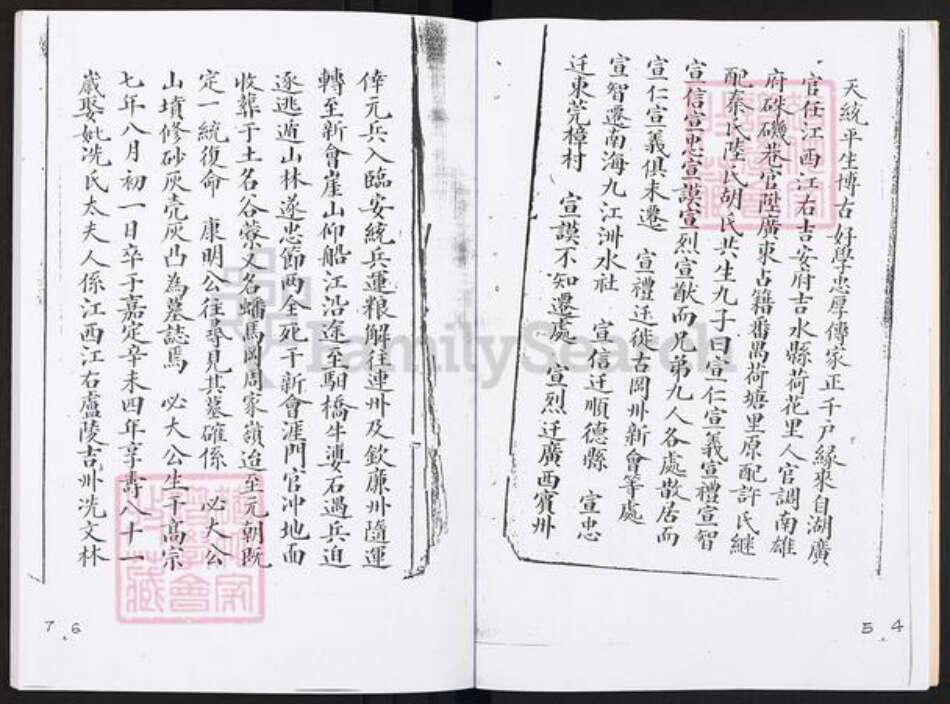 天統平生博古好學忠厚傳家正千戶緣來自湖廣
官任江西江右吉安府吉水縣荷花里人官調南雄
府硃磯巷官陞廣東占籍番禺荷塘里原配許氏継
配秦氏陸氏胡氏共生九子曰宣仁宣義宣禮宣智
宣信宣忠宣謨宣烈宣猷而兄弟九人各處散居而
宣仁宣義俱未遷 宣禮迁徙古岡州新會等處
宣智遷南海九江洲水社 宣信迁順德縣 宣忠
迁東莞樟村 宣謨不知遷處 宣烈迁廣西賓州
倖元兵入臨安統兵運粮解往連州及欽廉州隨運
轉至新會崖山仰船江沿途至駟橋牛瀴石遇兵迫
逐逃遁山林遂忠節兩全死于新會涯門官冲地面
收葬于土名谷蒙又名蟠馬岡周家嶺迨至元朝既
定一統復命 康明公往尋見其墓確係 必大公
山墳修砂灰壳灰凸為墓誌焉 必大公生于高宗
七年八月初一日卒于嘉定辛未四年享壽八十一
歲娶妣冼氏太夫人係江西江右盧陵吉州冼文林
7.6
5.4
FamilySearch